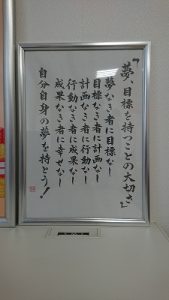 『夢、目標を持つことの大切さ』
夢なき者に目標なし
目標なき者に計画なし
計画なき者に行動なし
行動なき者に成果なし
成果なき者に幸せなし
自分自身の夢を持とう！